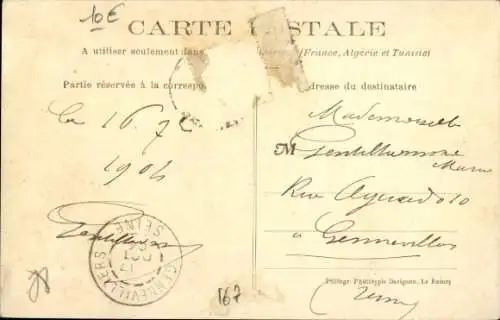 10€
CARTE POSTALE
A utiliser seulement dans (France, Algérie et Tunisie)
Partie réservée à la correspo dresse du destinataire
Le 16.
1904
Mademoiselle
M Gentilhomme
Marie
Rue 10
à Gennevilliers
GENNEVILLIERS
SEINE
167
Phototypie Le Raincy
(Seine)